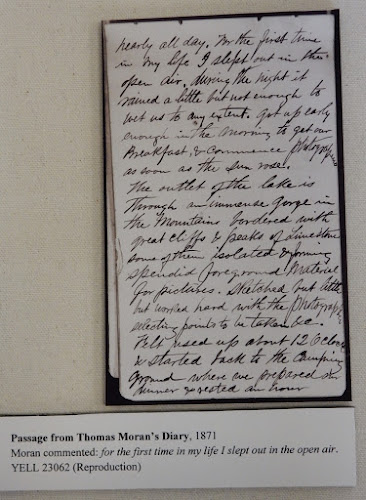 nearly all day. For the first time
in my life I slept out in the
open air. during the night it
rained a little but not enough to
wet us to any extent. Got up early
enough in the morning to get our
Breakfast & Commence photographing
as soon as the sun rose.
The outlet of the lake is
through an immense gorge in
the Mountains bordered with
great cliffs & peaks of Limestone
some of them isolated & forming
splendid foreground Material
for pictures. Sketched but little
but worked hard with the photographer
selecting points to be taken &c.
Felt used up about 12 O clock
& started back to the Camping
ground where we prepared our
dinner & rested an hour
Passage from Thomas Moran's Diary, 1871
Moran commented: for the first time in my life I slept out in the open air.
YELL 23062 (Reproduction)